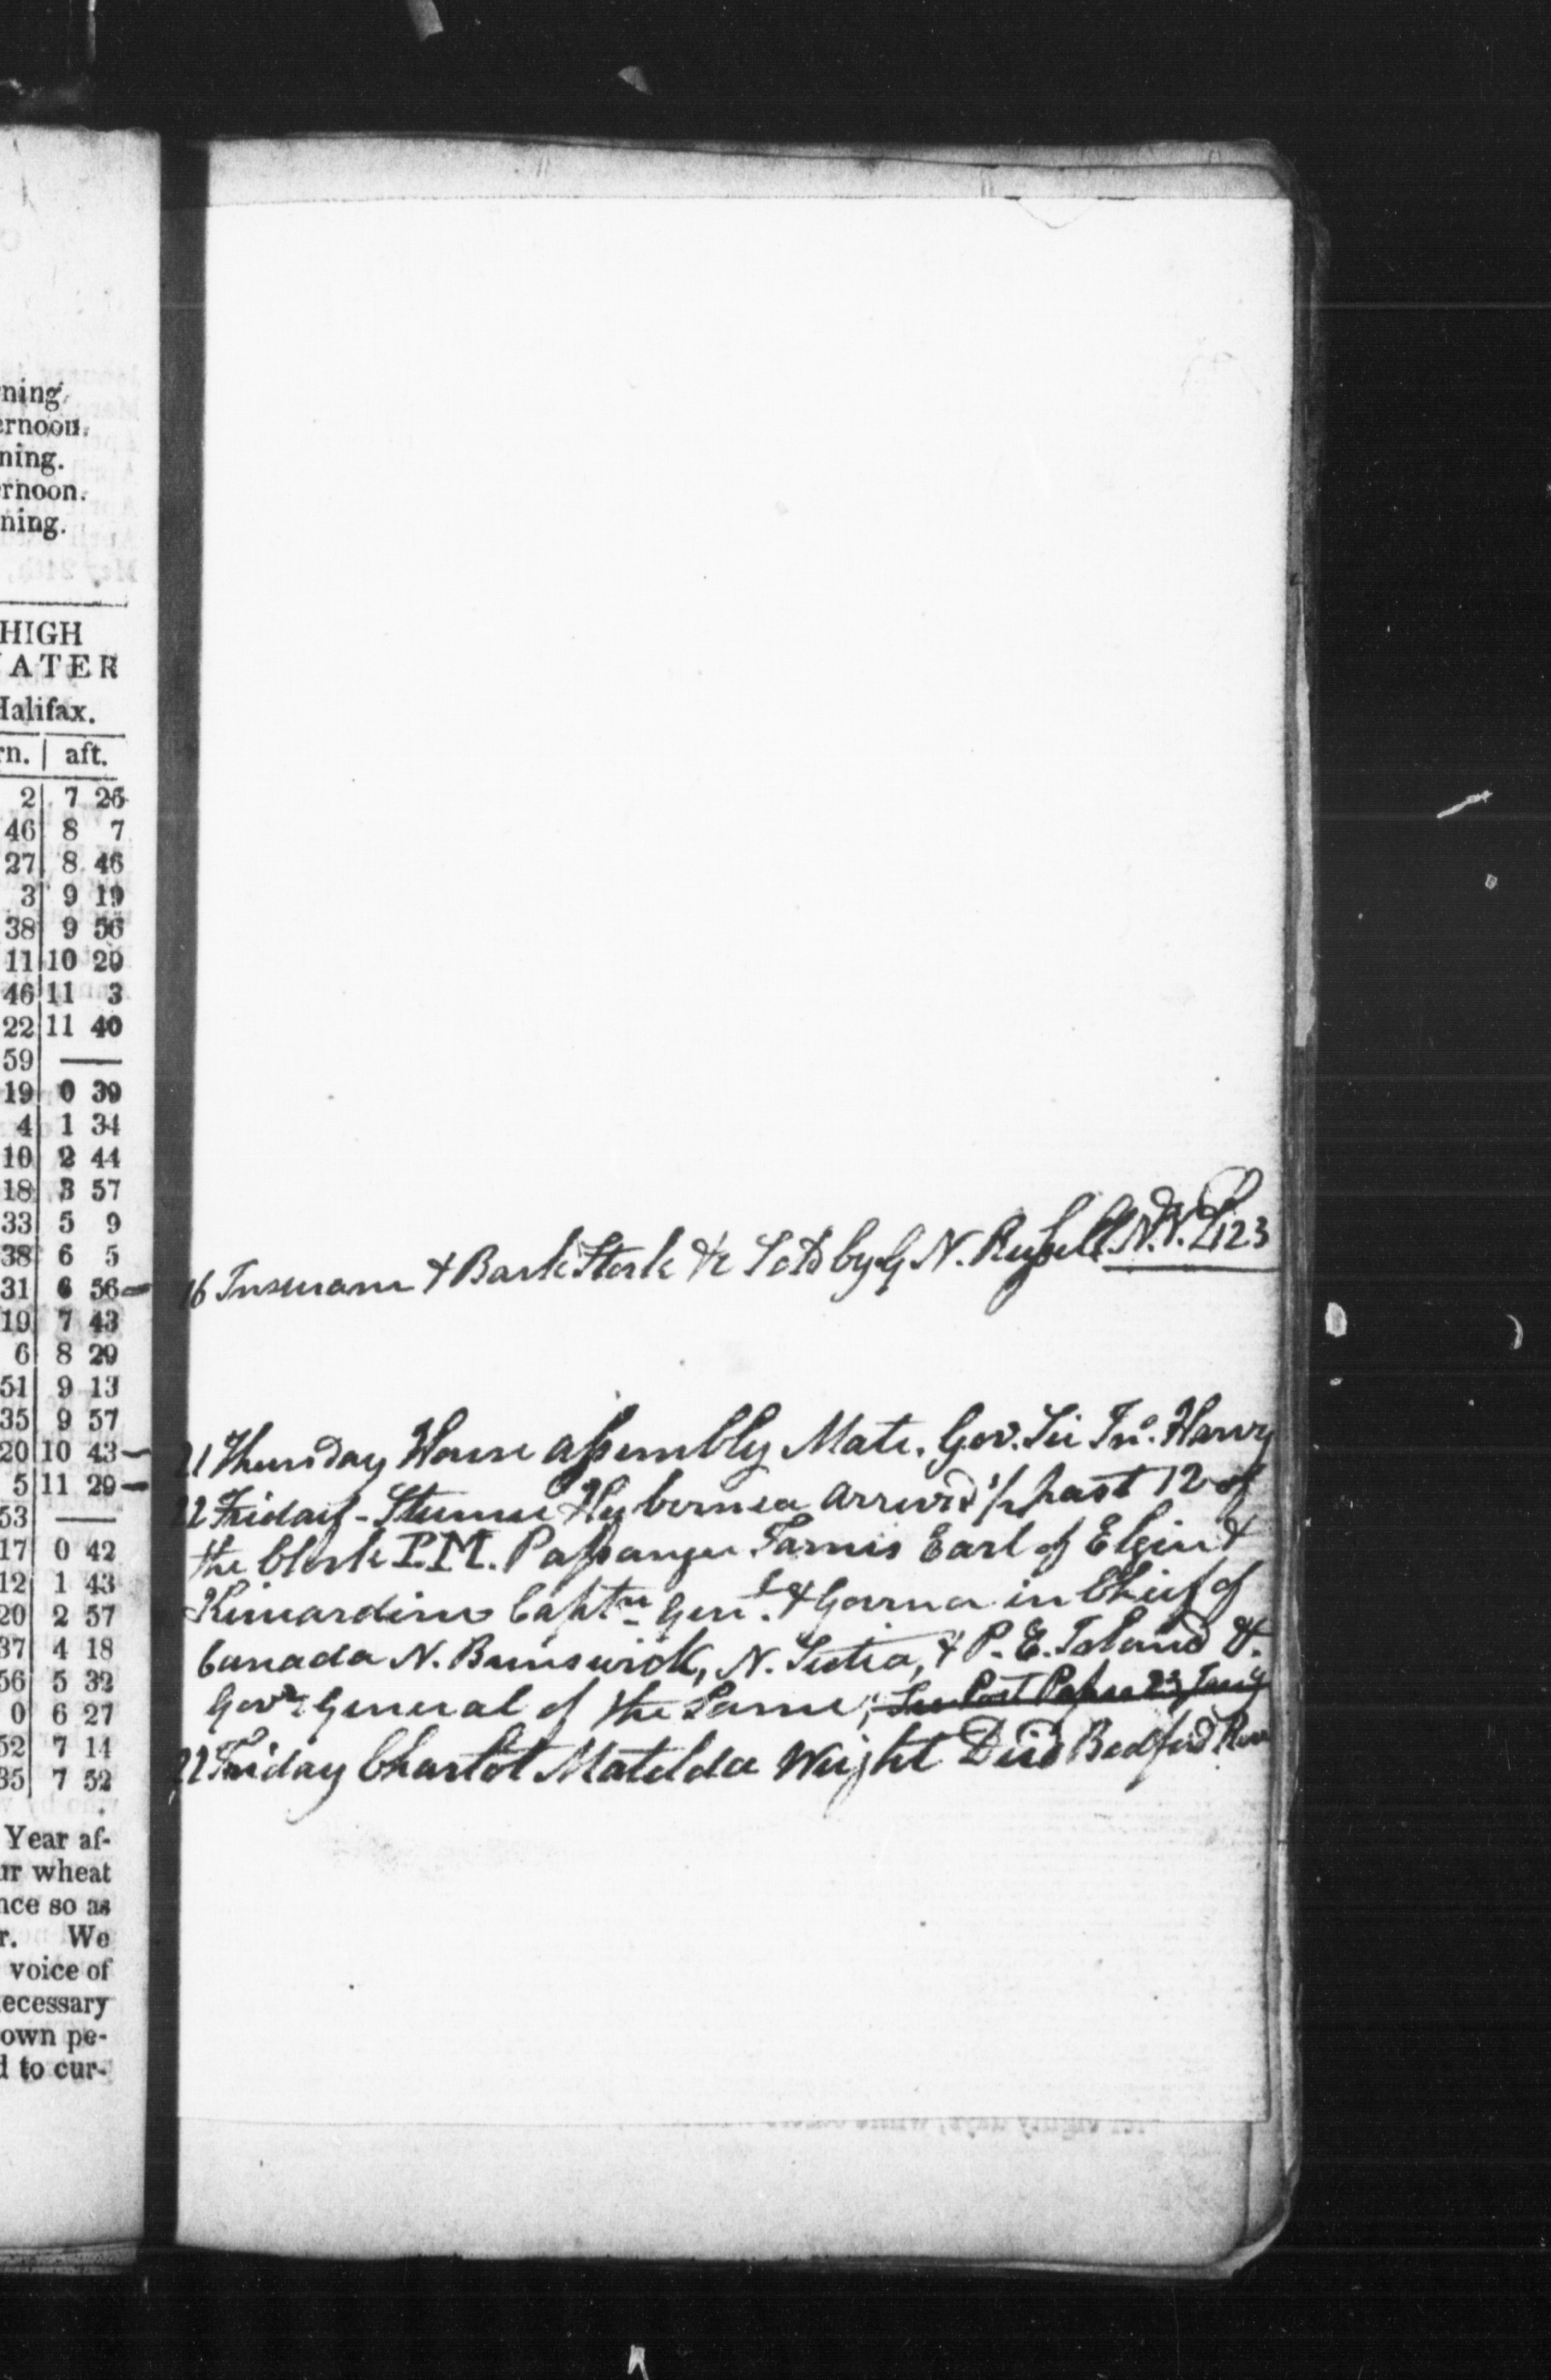 ning.
ernoon.
ning.
rnoon.
ning.
HIGH
ATER
Halifax.
rn. | aft.
2 7 26
46 8 7
27 8 46
3 9 19
38 9 56
11 10 29
46 11 3
22 11 40
59 —
19 0 39
4 1 34
10 2 44
18 3 57
33 5 9
38 6 5
31 6 56
19 7 43
6 8 29
51 9 13
35 9 57
20 10 43
5 11 29
53 —
17 0 42
12 1 43
20 2 57
37 4 18
56 5 32
0 6 27
52 7 14
35 7 52
Year af-
ur wheat
nce so as
r. We
voice of
ecessary
own pe-
d to cur-
16 Insuram & Bank Stock &c Sold by G. N. Russell
21 Thursday House assembly Mate. Gov. Sir Jno. Harvy
22 Friday - Stemer Hybernea arrived ½ past 12 of
the Clock P.M. Passanger Jarnes Earl of Elgin &
Kinardine Captn Genl. & Govrnor in Chief of
Canada N. Brunswick, N. Scotia, & P. E. Island &
Govr General of the Same,
22 Friday Charlot Matelda Wright Died Bedford Row